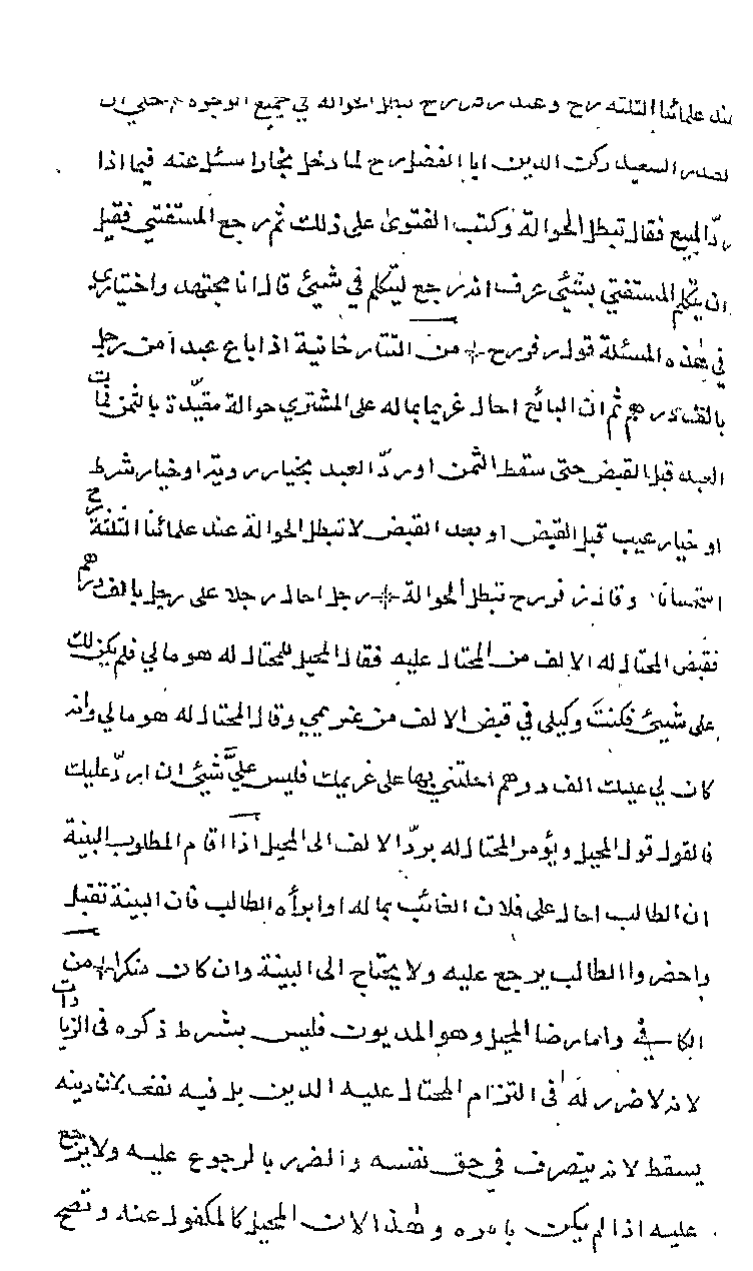 عند علمائنا الثلثة رح وعند زفر رح تبطل الحوالة في جميع الوجوه ثم حكي ان
لصدر السعيد ركن الدين ابا الفضل رح لما دخل بخارا سئل عنه فيما اذا
ردّ المبيع فقال تبطل الحوالة وكتب الفتوى على ذلك ثم رجع المستفتي فقيل
ان يتكلم المستفتي بشئ عرف انه رجع ليتكلم في شيئ قال انا مجتهد واختياري
في هذه المسئلة قول زفر رح من التتارخانية اذا باع عبدا من رجل
بالف درهم ثم ان البائع احال غريما بماله على المشتري حوالة مقيّدة بالثمن فمات
العبد قبل القبض حتى سقط الثمن او ردّ العبد بخيار روية او خيار شرط
او خيار عيب قبل القبض او بعد القبض لا تبطل الحوالة عند علمائنا الثلثة رح
استحسانا وقال زفر رح تبطل الحوالة رجل احال رجلا على رجل بالف درهم
فقبض المحتال له الالف من المحتال عليه فقال المحيل للمحتال له هو مالي فلم يكن لك
على شيئ فكنتَ وكيلي في قبض الالف من غريمي وقال المحتال له هو مالي وانه
كان لي عليك الف درهم احلتني بها على غريمك فليس عليَّ شيئ ان ارد عليك
فالقول قول المحيل ويؤمر المحتال له بردّ الالف الى المحيل اذا اقام المطلوب البينة
ان الطالب احال على فلان الغائب بماله او ابرأه الطالب فان البينة تقبل
واحضروا الطالب يرجع عليه ولا يحتاج الى البينة وان كان منكرا من
الكافي واما رضا المحيل وهو المديون فليس بشرط ذكره في الزيادات
لانه لا ضرر له في التزام المحتال عليه الدين بل فيه نفع لان دينه
يسقط لانه يتصرف في حق نفسه والضرر بالرجوع عليه ولا يرجع
عليه اذا لم يكن بامره وهذا لان المحيل كالمكفول عنه وتصح